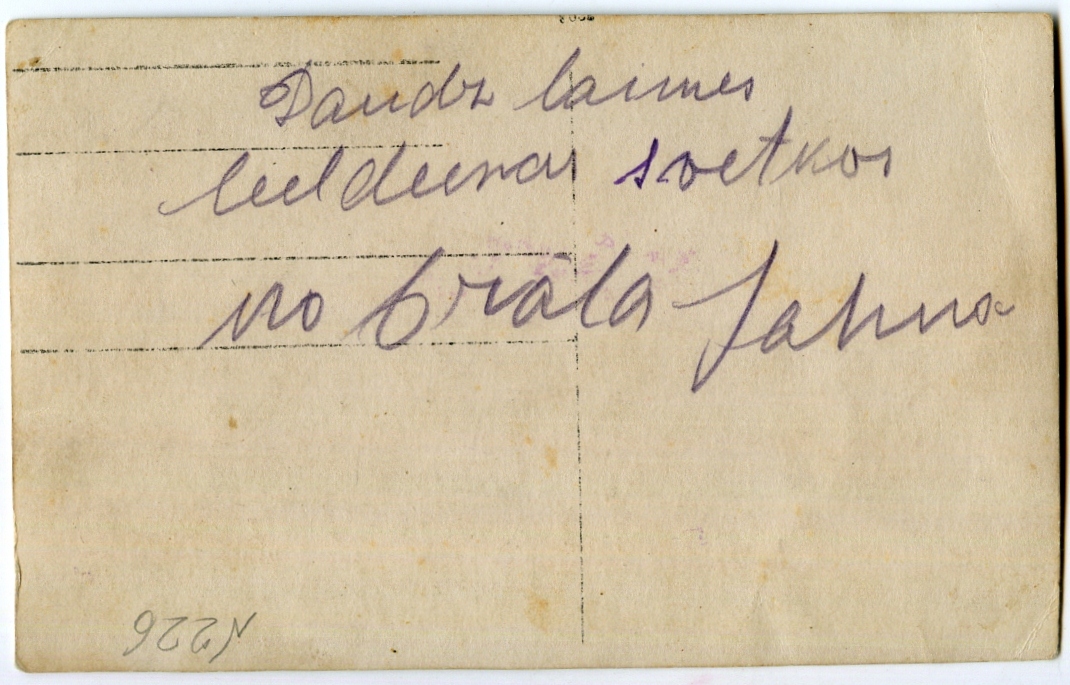 Daudz laimes
leeldeenas svetkos
no brāļa Jahņa
N226